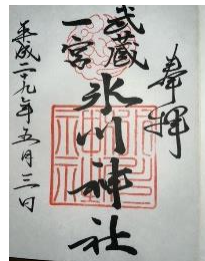 奉拝
武蔵
一宮
氷川神社
平成二十九年五月三日